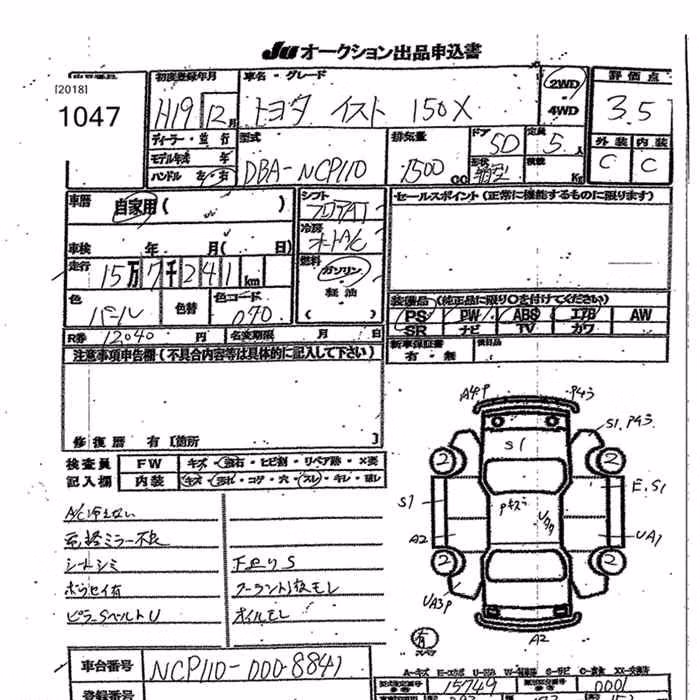 JU オークション出品申込書
出品番号 初度登録年月 車名・グレード 2WD 評価点
[2018]
1047 H19 12月 トヨタ イスト 150X 4WD 3.5
ディーラー・並行 型式 排気量 ドア 定員 外装 内装
モデル年式 年 DBA-NCP110 1500cc 5D 5人 C C
ハンドル 左・右 形状 箱型 積載 Kg
車歴 自家用( ) シフト セールスポイント(正常に機能するものに限ります)
冷房 オートA/C
車検 年 月( 日)
走行 15万7千241km 燃料 ガソリン
軽油
色 パール 色替 色コード 070 ( )
装備品 (純正品に限り○を付けてください)
PS PW ABS エアB AW
R券 12040円 名変期限 月 日 SR ナビ TV カワ
注意事項申告欄(不具合内容等は具体的に記入して下さい) 新車保証書 後日品
有・無
修復歴 有[箇所 ]
検査員 FW キズ・飛石・ヒビ割・リペア跡・×要
記入欄 内装 キズ・汚れ・コゲ・穴・スレ・キレ・破レ
A/C冷えない
ミラー不良
シートシミ 下回りS
ホウセイ有 クーラント1次モレ
ピラーSベルトU オイルモレ
A4P P43
S1 S1.P43
2 2
S1 Pキズ E.S1
A2 UA1
2 2
UA3P
有 A2
A-キズ E-エクボ U-凹み W-補修跡 S-サビ C-腐食 XX-交換済
車台番号 NCP110-0008841 型式指定番号 15749 類別区分番号 0001
登録番号